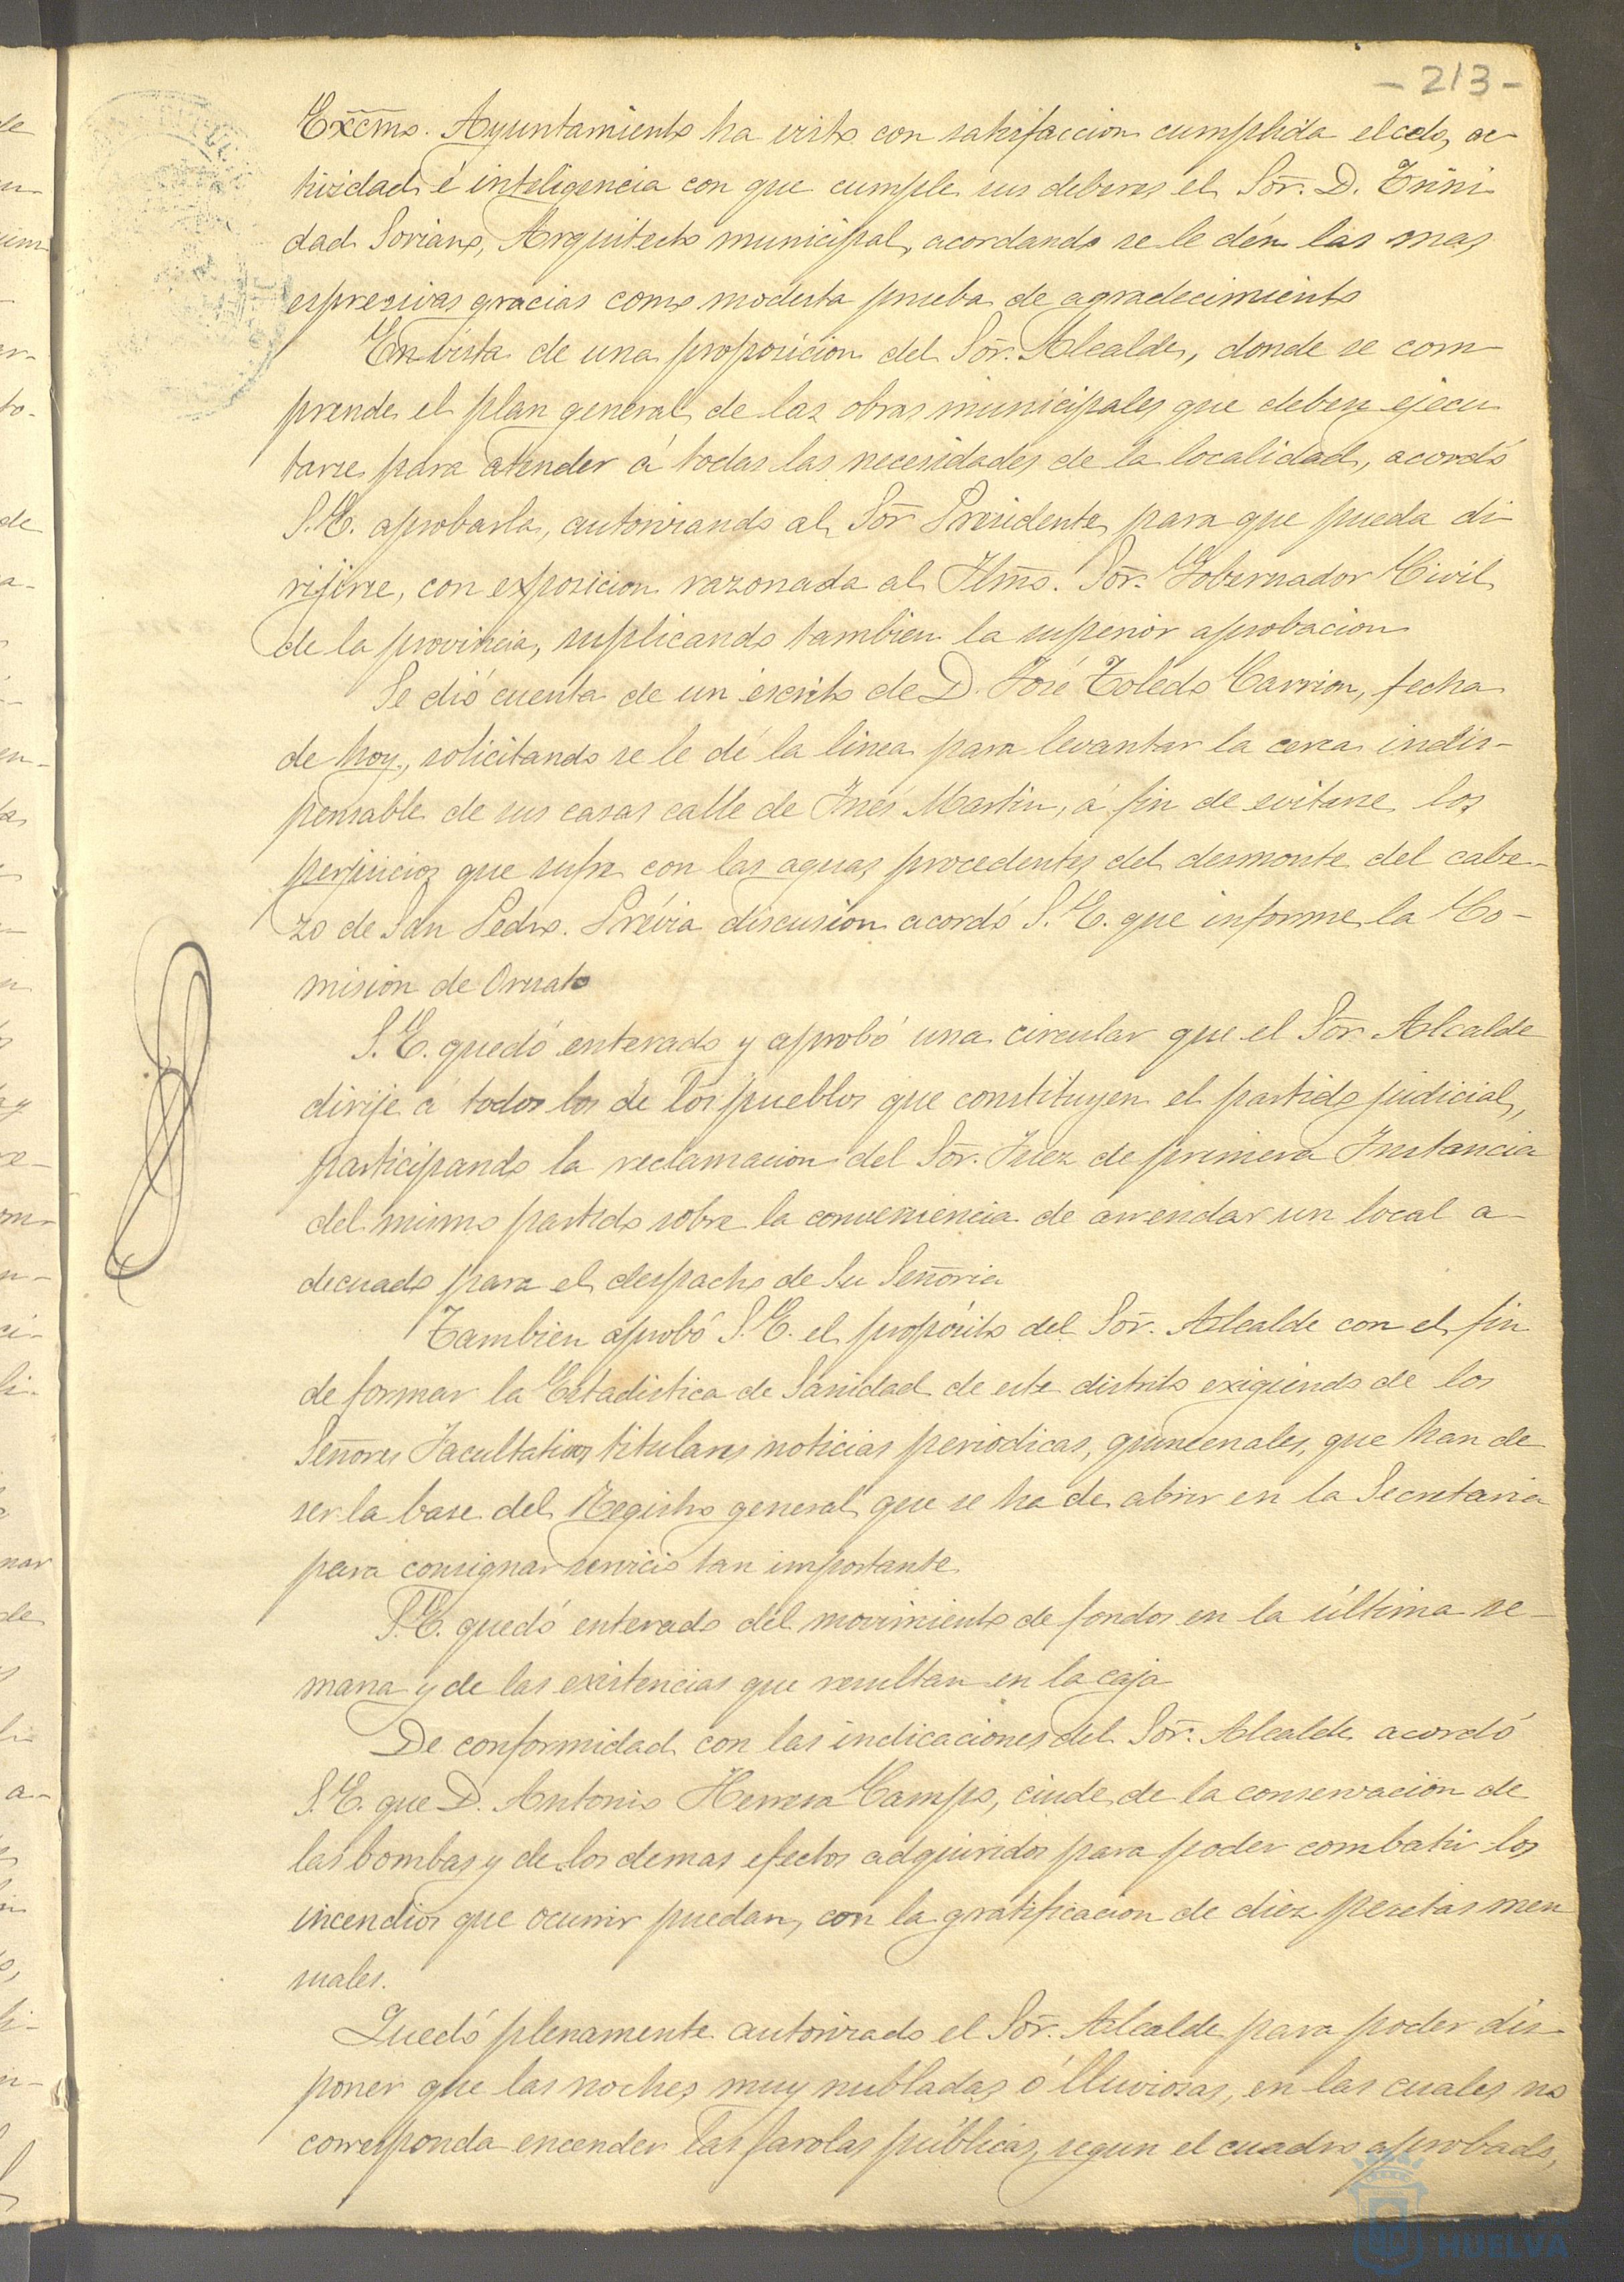 - 213 -
Excmo. Ayuntamiento ha visto con satisfaccion cumplida el celo, ac
tividad é inteligencia con que cumple sus deberes el Sor. D. Trini
dad Soriano, Arquitecto municipal, acordando se le dén las mas
espresivas gracias como modesta prueba de agradecimiento
En vista de una proposicion del Sor. Alcalde, donde se com-
prende el plan general de las obras municipales que deben ejecu
tarse para atender á todas las necesidades de la localidad, acordó
S.E. aprobarla, autorizando al Sor Presidente para que pueda di-
rijirse, con exposicion razonada al Ilmo. Sor. Gobernador Civil
de la provincia, suplicando tambien la superior aprobacion
Se dió cuenta de un escrito de D. José Toledo Carrion, fecha
de hoy, solicitando se le dé la linea para levantar la cerca indis-
pensable de sus casas calle de Inés Martin, á fin de evitarse los
perjuicios que sufre con las aguas procedentes del desmonte del cabe-
zo de San Pedro. Prévia discusion acordó S.E. que informe la Co-
mision de Ornato
S.E. quedó enterado y aprobó una circular que el Sor Alcalde
dirije á todos los de los pueblos que constituyen el partido judicial,
participando la reclamacion del Sor. Juez de primera Instancia
del mismo partido sobre la conveniencia de arrendar un local a-
decuado para el despacho de Su Señoria
Tambien aprobó S.E. el propósito del Sor. Alcalde con el fin
de formar la Estadistica de Sanidad de este distrito exigiendo de los
Señores Facultativos titulares noticias periódicas, quincenales, que han de
ser la base del Registro general que se ha de abrir en la Secretaria
para consignar servicio tan importante
S.E. quedó enterado del movimiento de fondos en la última se-
mana y de las existencias que resultan en la caja
De conformidad con las indicaciones del Sor. Alcalde acordó
S.E. que D. Antonio Herrera Campo, cuide de la conservacion de
las bombas y de los demas efectos adquiridos para poder combatir los
incendios que ocurrir puedan, con la gratificacion de diez pesetas men
suales.
Quedó plenamente autorizado el Sor. Alcalde para poder dis-
poner que las noches muy nubladas ó lluviosas, en las cuales no
corresponda encender las farolas públicas, segun el cuadro aprobado,
HUELVA